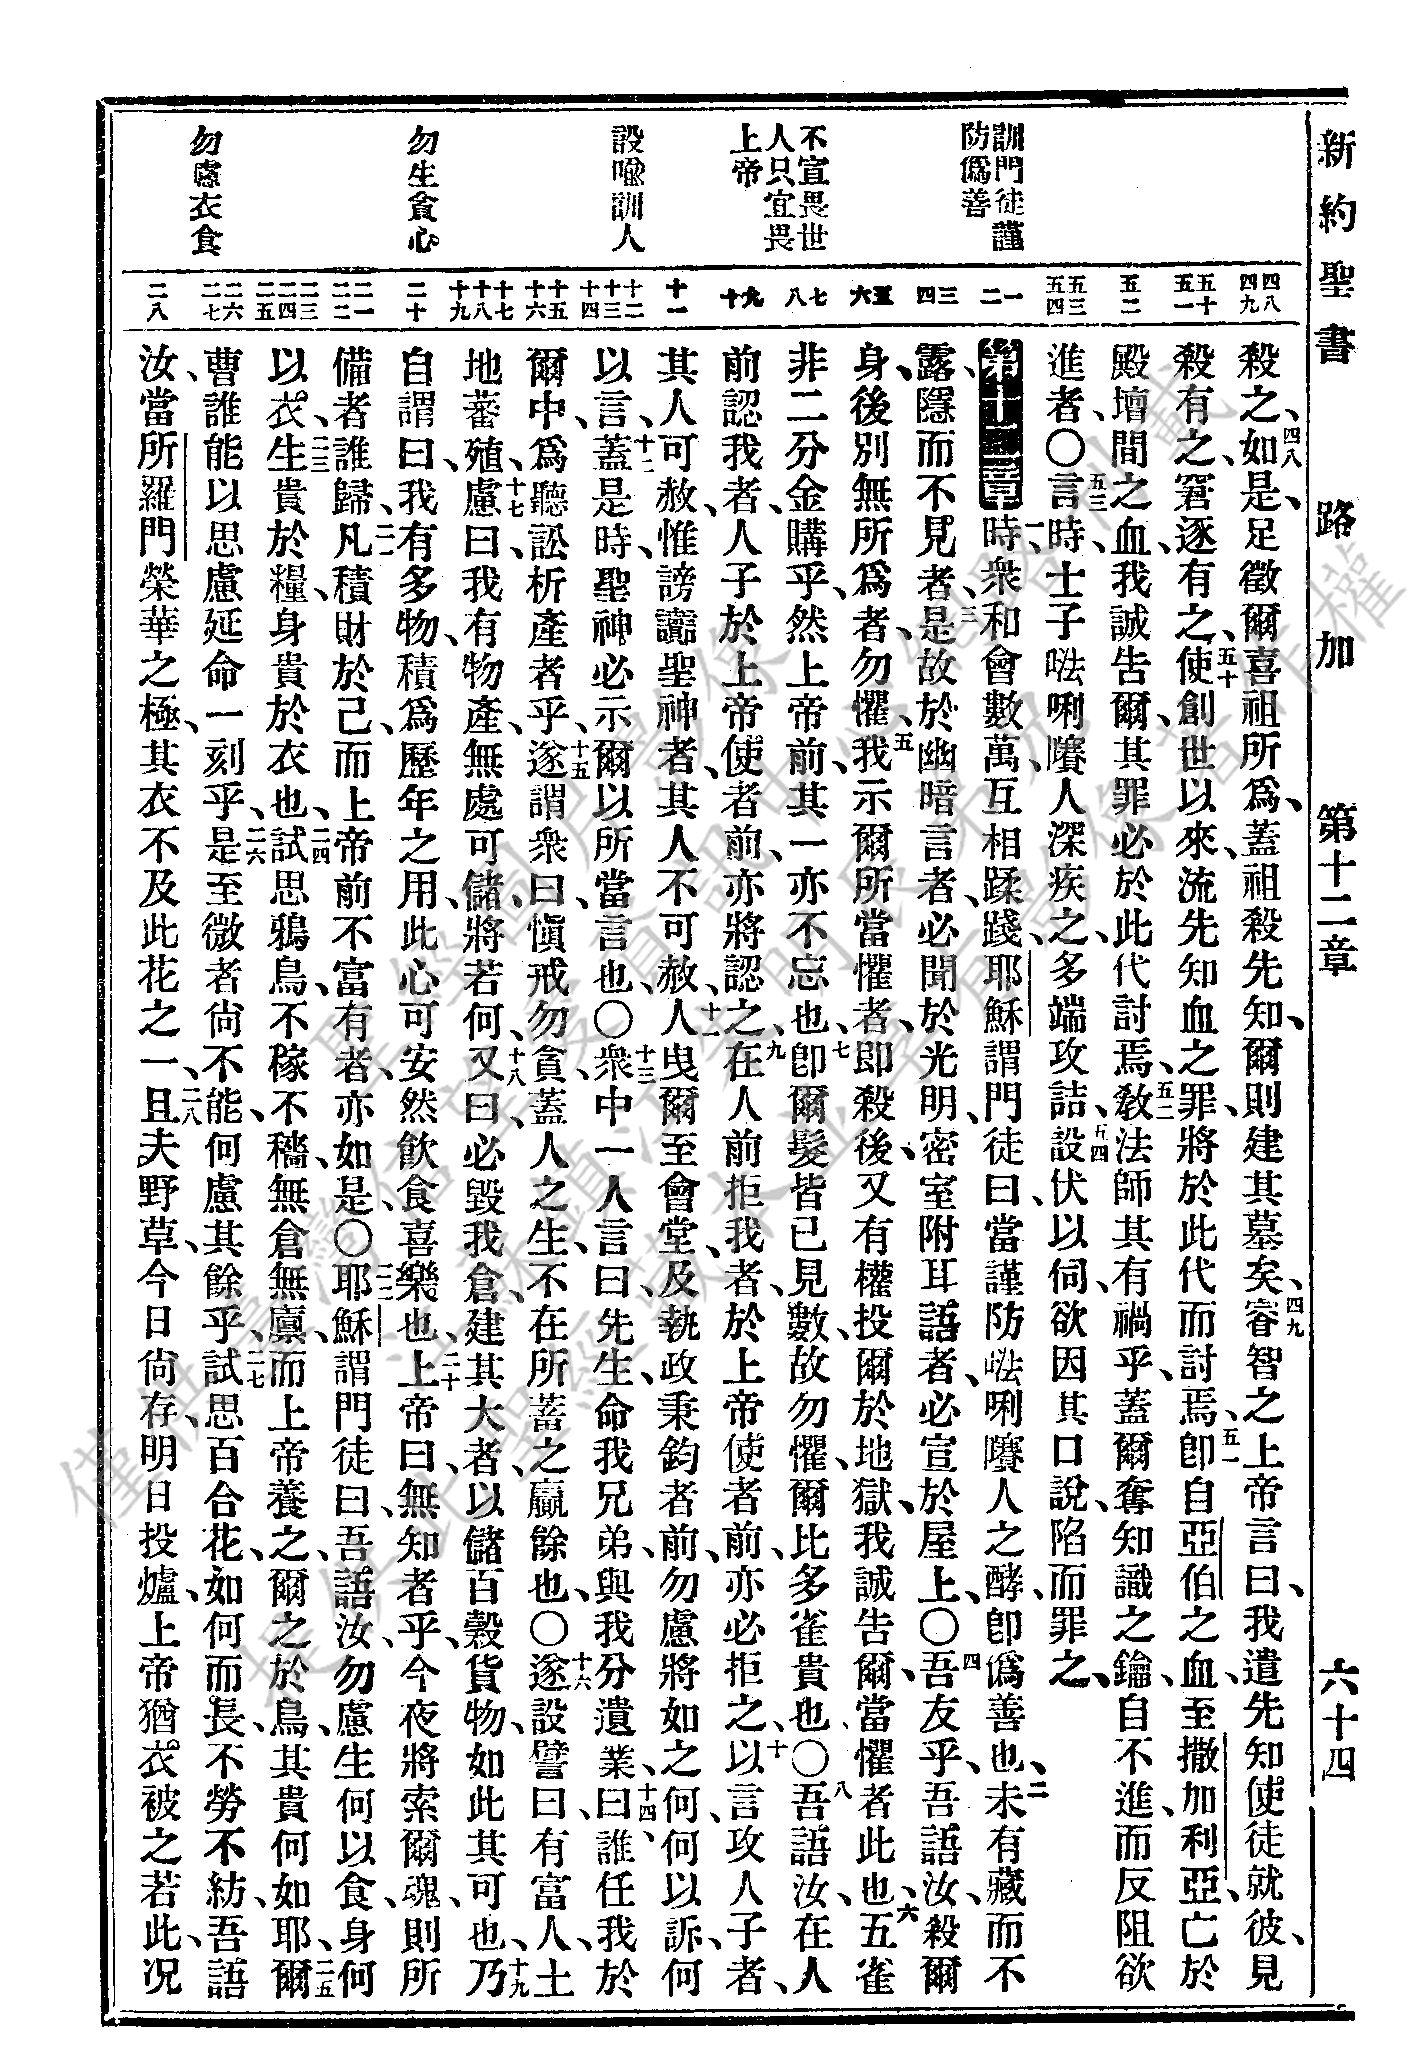 新約聖書 路加 第十二章 六十四
訓門徒謹防僞善
不宜畏世人只宜畏上帝
設喩訓人
勿生貪心
勿慮衣食
四八 四九
五十 五一
五二
五三 五四
一 二
三 四
五 六
七 八
九 十
十一
十二 十三 十四
十五 十六
十七 十八 十九
二十
二一 二二
二三 二四 二五
二六 二七
二八
殺之、四八如是、足徵爾喜祖所爲、蓋祖殺先知、爾則建其墓矣、四九睿智之上帝言曰、我遣先知使徒就彼、見
殺有之、窘逐有之、五十使創世以來、流先知血之罪、將於此代而討焉、五一卽自亞伯之血、至撒加利亞亡於
殿壇間之血、我誠告爾、其罪必於此代討焉、五二敎法師其有禍乎、蓋爾奪知識之鑰、自不進、而反阻欲
進者、〇五三言時、士子𠵽唎㘔人深疾之、多端攻詰、五四設伏以伺、欲因其口說、陷而罪之、
第十二章 一時衆和會數萬、互相蹂踐、耶穌謂門徒曰、當謹防𠵽唎㘔人之酵、卽僞善也、二未有藏而不
露、隱而不見者、三是故於幽暗言者、必聞於光明、密室附耳語者、必宣於屋上、〇四吾友乎、吾語汝、殺爾
身、後別無所爲者、勿懼、五我示爾所當懼者、卽殺後、又有權投爾於地獄、我誠告爾、當懼者此也、六五雀
非二分金購乎、然上帝前、其一亦不忘也、七卽爾髮皆已見數、故勿懼、爾比多雀貴也、〇八吾語汝、在人
前認我者、人子於上帝使者前、亦將認之、九在人前拒我者、於上帝使者前、亦必拒之、十以言攻人子者、
其人可赦、惟謗讟聖神者、其人不可赦、十一人曳爾至會堂、及執政秉鈞者前、勿慮將如之何、何以訴、何
以言、十二蓋是時、聖神必示爾以所當言也、〇十三衆中一人言曰、先生、命我兄弟、與我分遺業、十四曰、誰任我於
爾中、爲聽訟析產者乎、十五遂謂衆曰、愼戒勿貪、蓋人之生、不在所蓄之贏餘也、〇十六遂設譬曰、有富人、土
地蕃殖、十七慮曰、我有物產、無處可儲、將若何、十八又曰、必毀我倉、建其大者、以儲百穀貨物、如此其可也、十九乃
自謂曰、我有多物、積爲歷年之用、此心可安然飮食喜樂也、二十上帝曰、無知者乎、今夜將索爾魂、則所
備者誰歸、二一凡積財於己、而上帝前不富有者、亦如是、〇二二耶穌謂門徒曰、吾語汝、勿慮生何以食、身何
以衣、二三生貴於糧、身貴於衣也、二四試思鴉鳥、不稼不穡、無倉無廩、而上帝養之、爾之於鳥、其貴何如耶、二五爾
曹誰能以思慮延命一刻乎、二六是至微者尙不能、何慮其餘乎、二七試思百合花、如何而長、不勞不紡、吾語
汝、當所羅門榮華之極、其衣不及此花之一、二八且夫野草、今日尙存、明日投爐、上帝猶衣被之若此、况